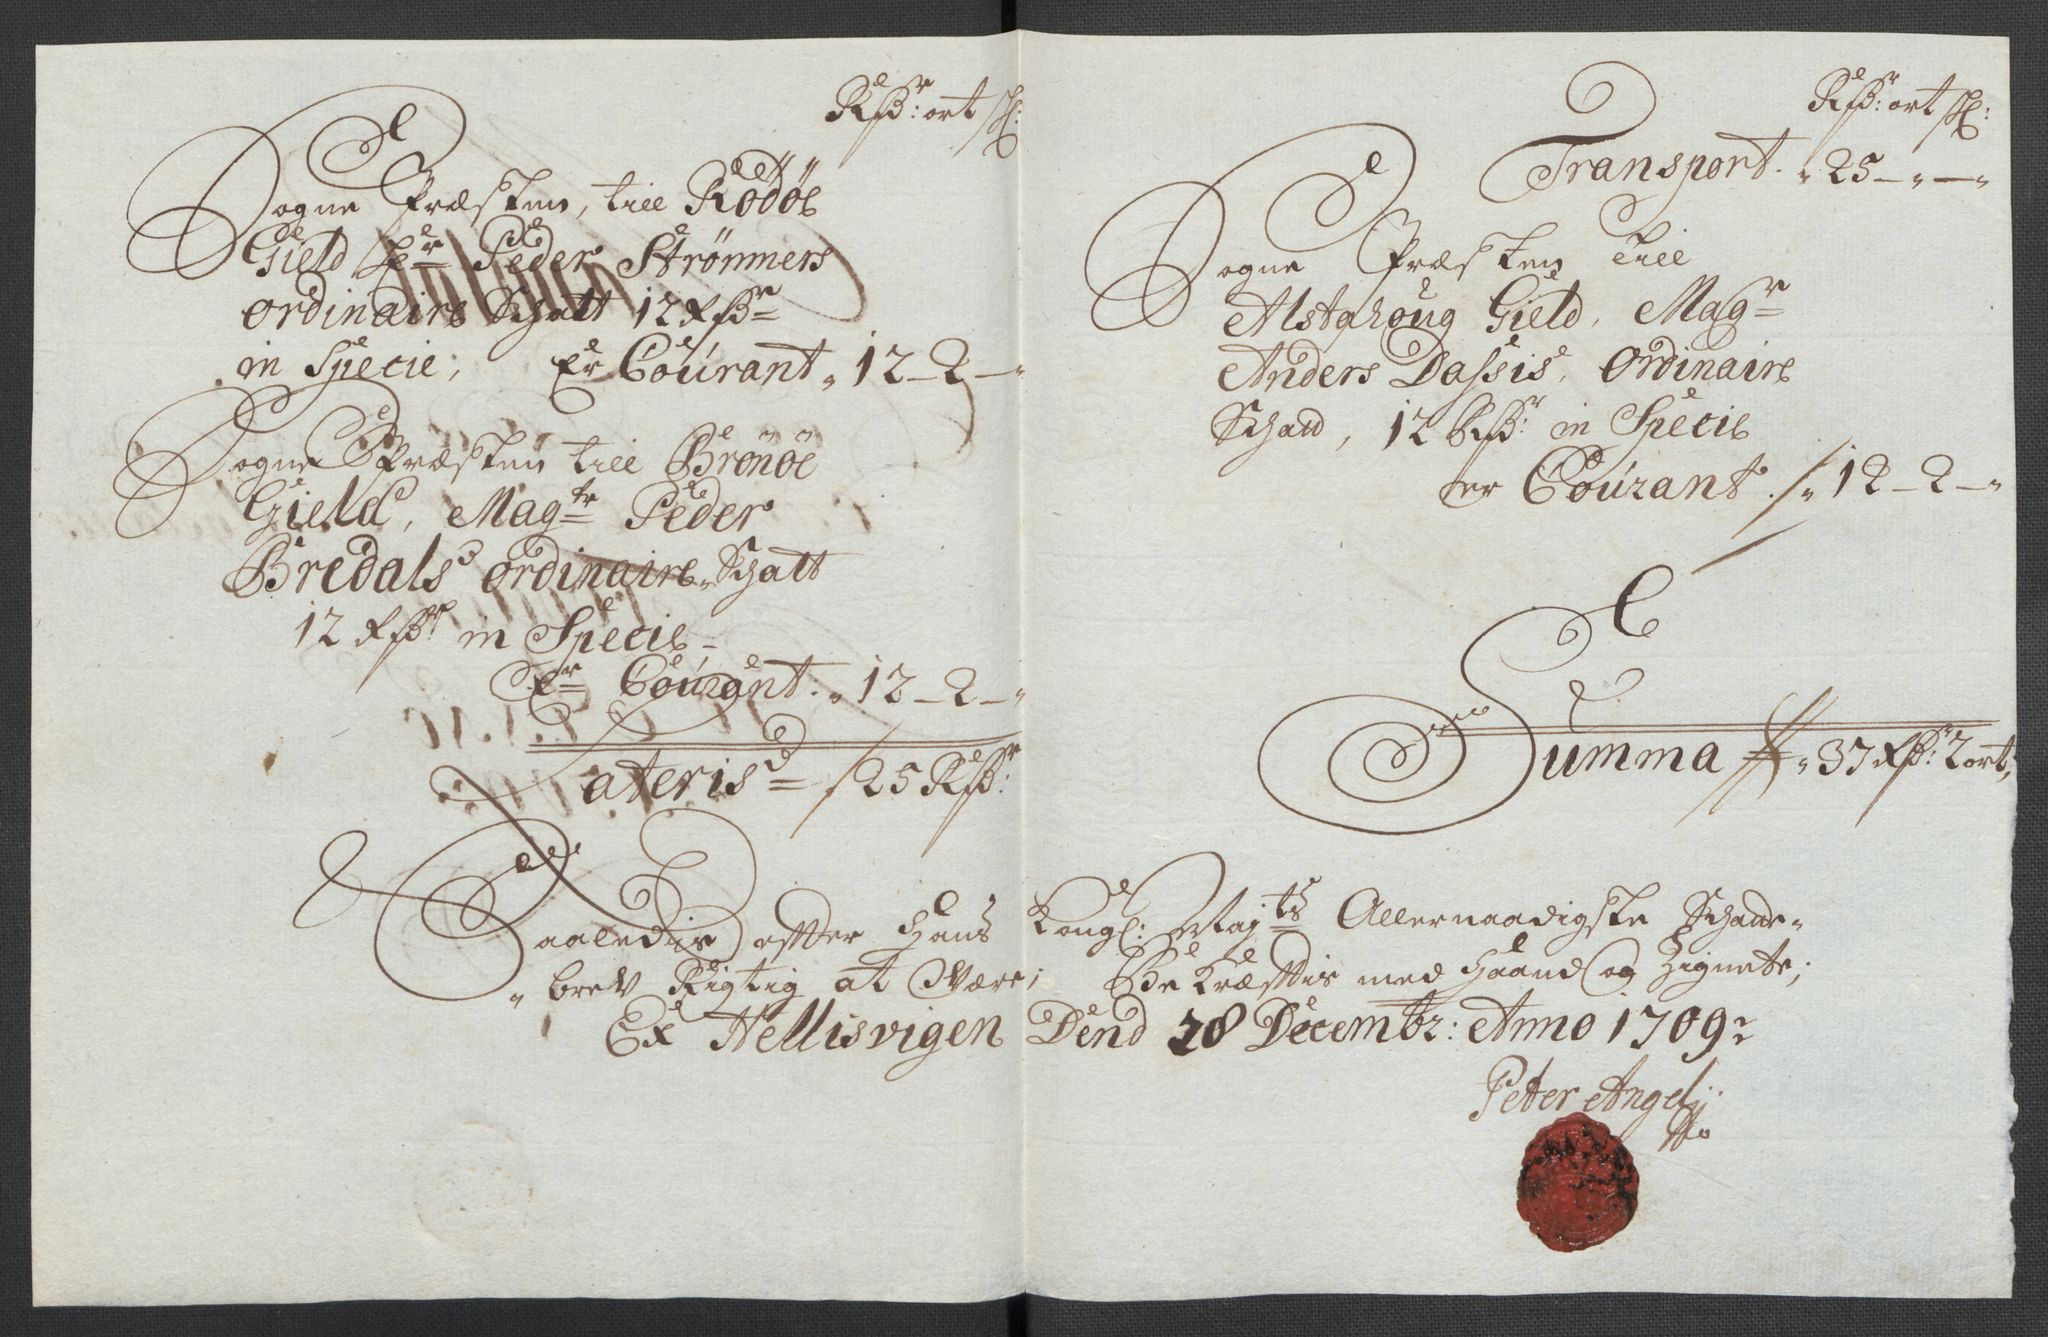 Rdr: ort sk:
Sogne Præsten, till Rödöe
Gield Hr Peder Strömmers
ordinaire Schatt 12 Rdr
in Specie; Er Courant „ 12 – 2 – „
Sogne Præsten till Brönöe
Gield, Magtr Peder
Bredals ordinaire Schatt
12 Rdr in Specie,
Er Courant. „ 12 – 2 – „
Lateris 25 Rdr:
Rdr: ort sk:
Transport. „ 25 – „ – „
Sogne Præsten till
Alstahoug Gield, Magr
Anders Dasses, Ordinaire
Schatt, 12 Rdr: in Specie
er Courant. „ 12 – 2 – „
Summa „ 37 Rdr: 2 ort,
Saaledis efter Hans Kongl: Maj:ts Allernaadigste Schatte-
„ brev Rigtig at Være; Bekræfftis med Haand og Zignete;
Ex Nellisvigen Dend 28 Decembr: Anno 1709
Peter Angel